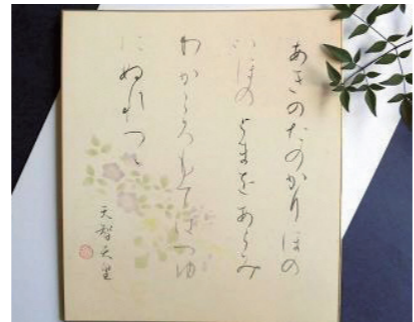 あきのたのかりほの
いほのとまをあらみ
わかころもてはつゆ
にぬれつゝ
天智天皇